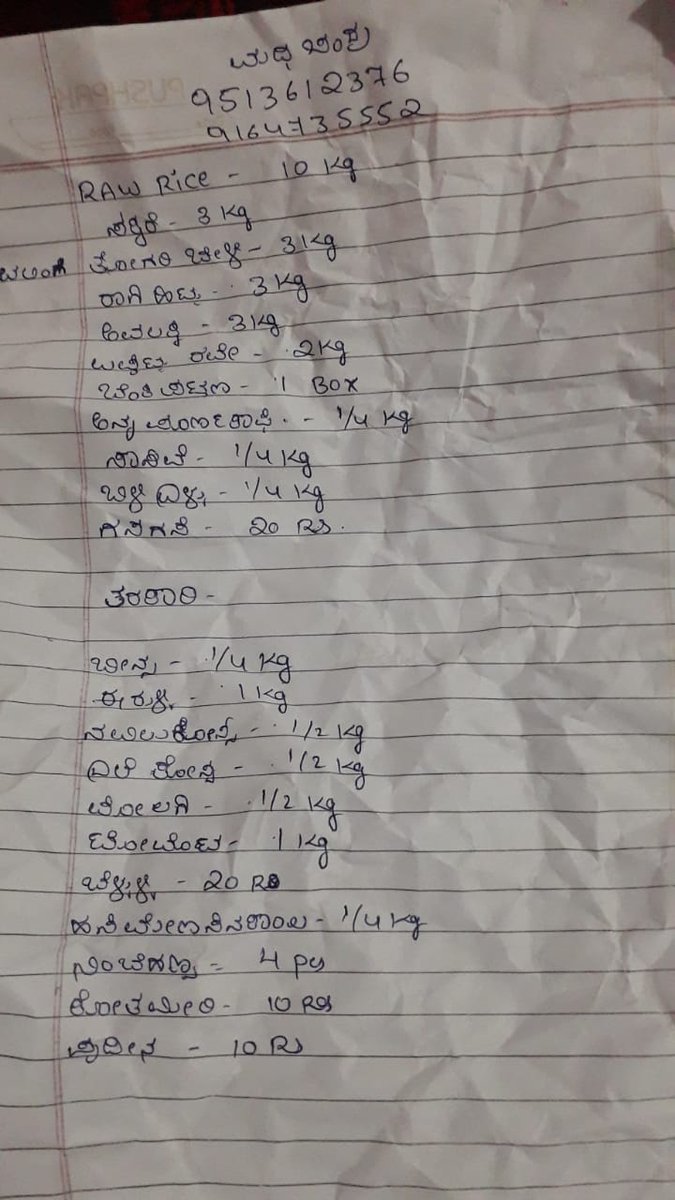 ಮಧು ಚಂದ್ರ
9513612376
9164735552
RAW Rice - 10 Kg
ಸಕ್ಕರೆ - 3 Kg
ತೋಗರಿ ಬೇಳೆ - 3 Kg
ರಾಗಿ ಹಿಟ್ಟು - 3 Kg
ಅವಲಕ್ಕಿ - 3 Kg
ಉಪ್ಪಿಟ್ಟು ರವೇ - 2 Kg
ಬೆಂಕಿ ಪಟ್ಟಣ - 1 Box
- 1/4 Kg
ಸಾಸಿವೆ - 1/4 Kg
ಬಿಳಿ ಎಳ್ಳು - 1/4 Kg
ಗಸಗಸೆ - 20 Rs.
ತರಕಾರಿ -
ಬೀನ್ಸ್ - 1/4 Kg
ಈರುಳ್ಳಿ - 1 Kg
ನವಿಲುಕೋಸು - 1/2 Kg
ಎಲೆ ಕೋಸು - 1/2 Kg
ಮೋಲಗಿ - 1/2 Kg
ಟೋಮೊಟೊ - 1 Kg
ಬೆಳ್ಳುಳ್ಳಿ - 20 Rs
ಹಸಿಮೇಣಸಿನಕಾಯಿ - 1/4 Kg
ನಿಂಬೆಹಣ್ಣು - 4 pcs
ಕೋತಮೀರಿ - 10 Rs
ಪುದೀನ - 10 Rs